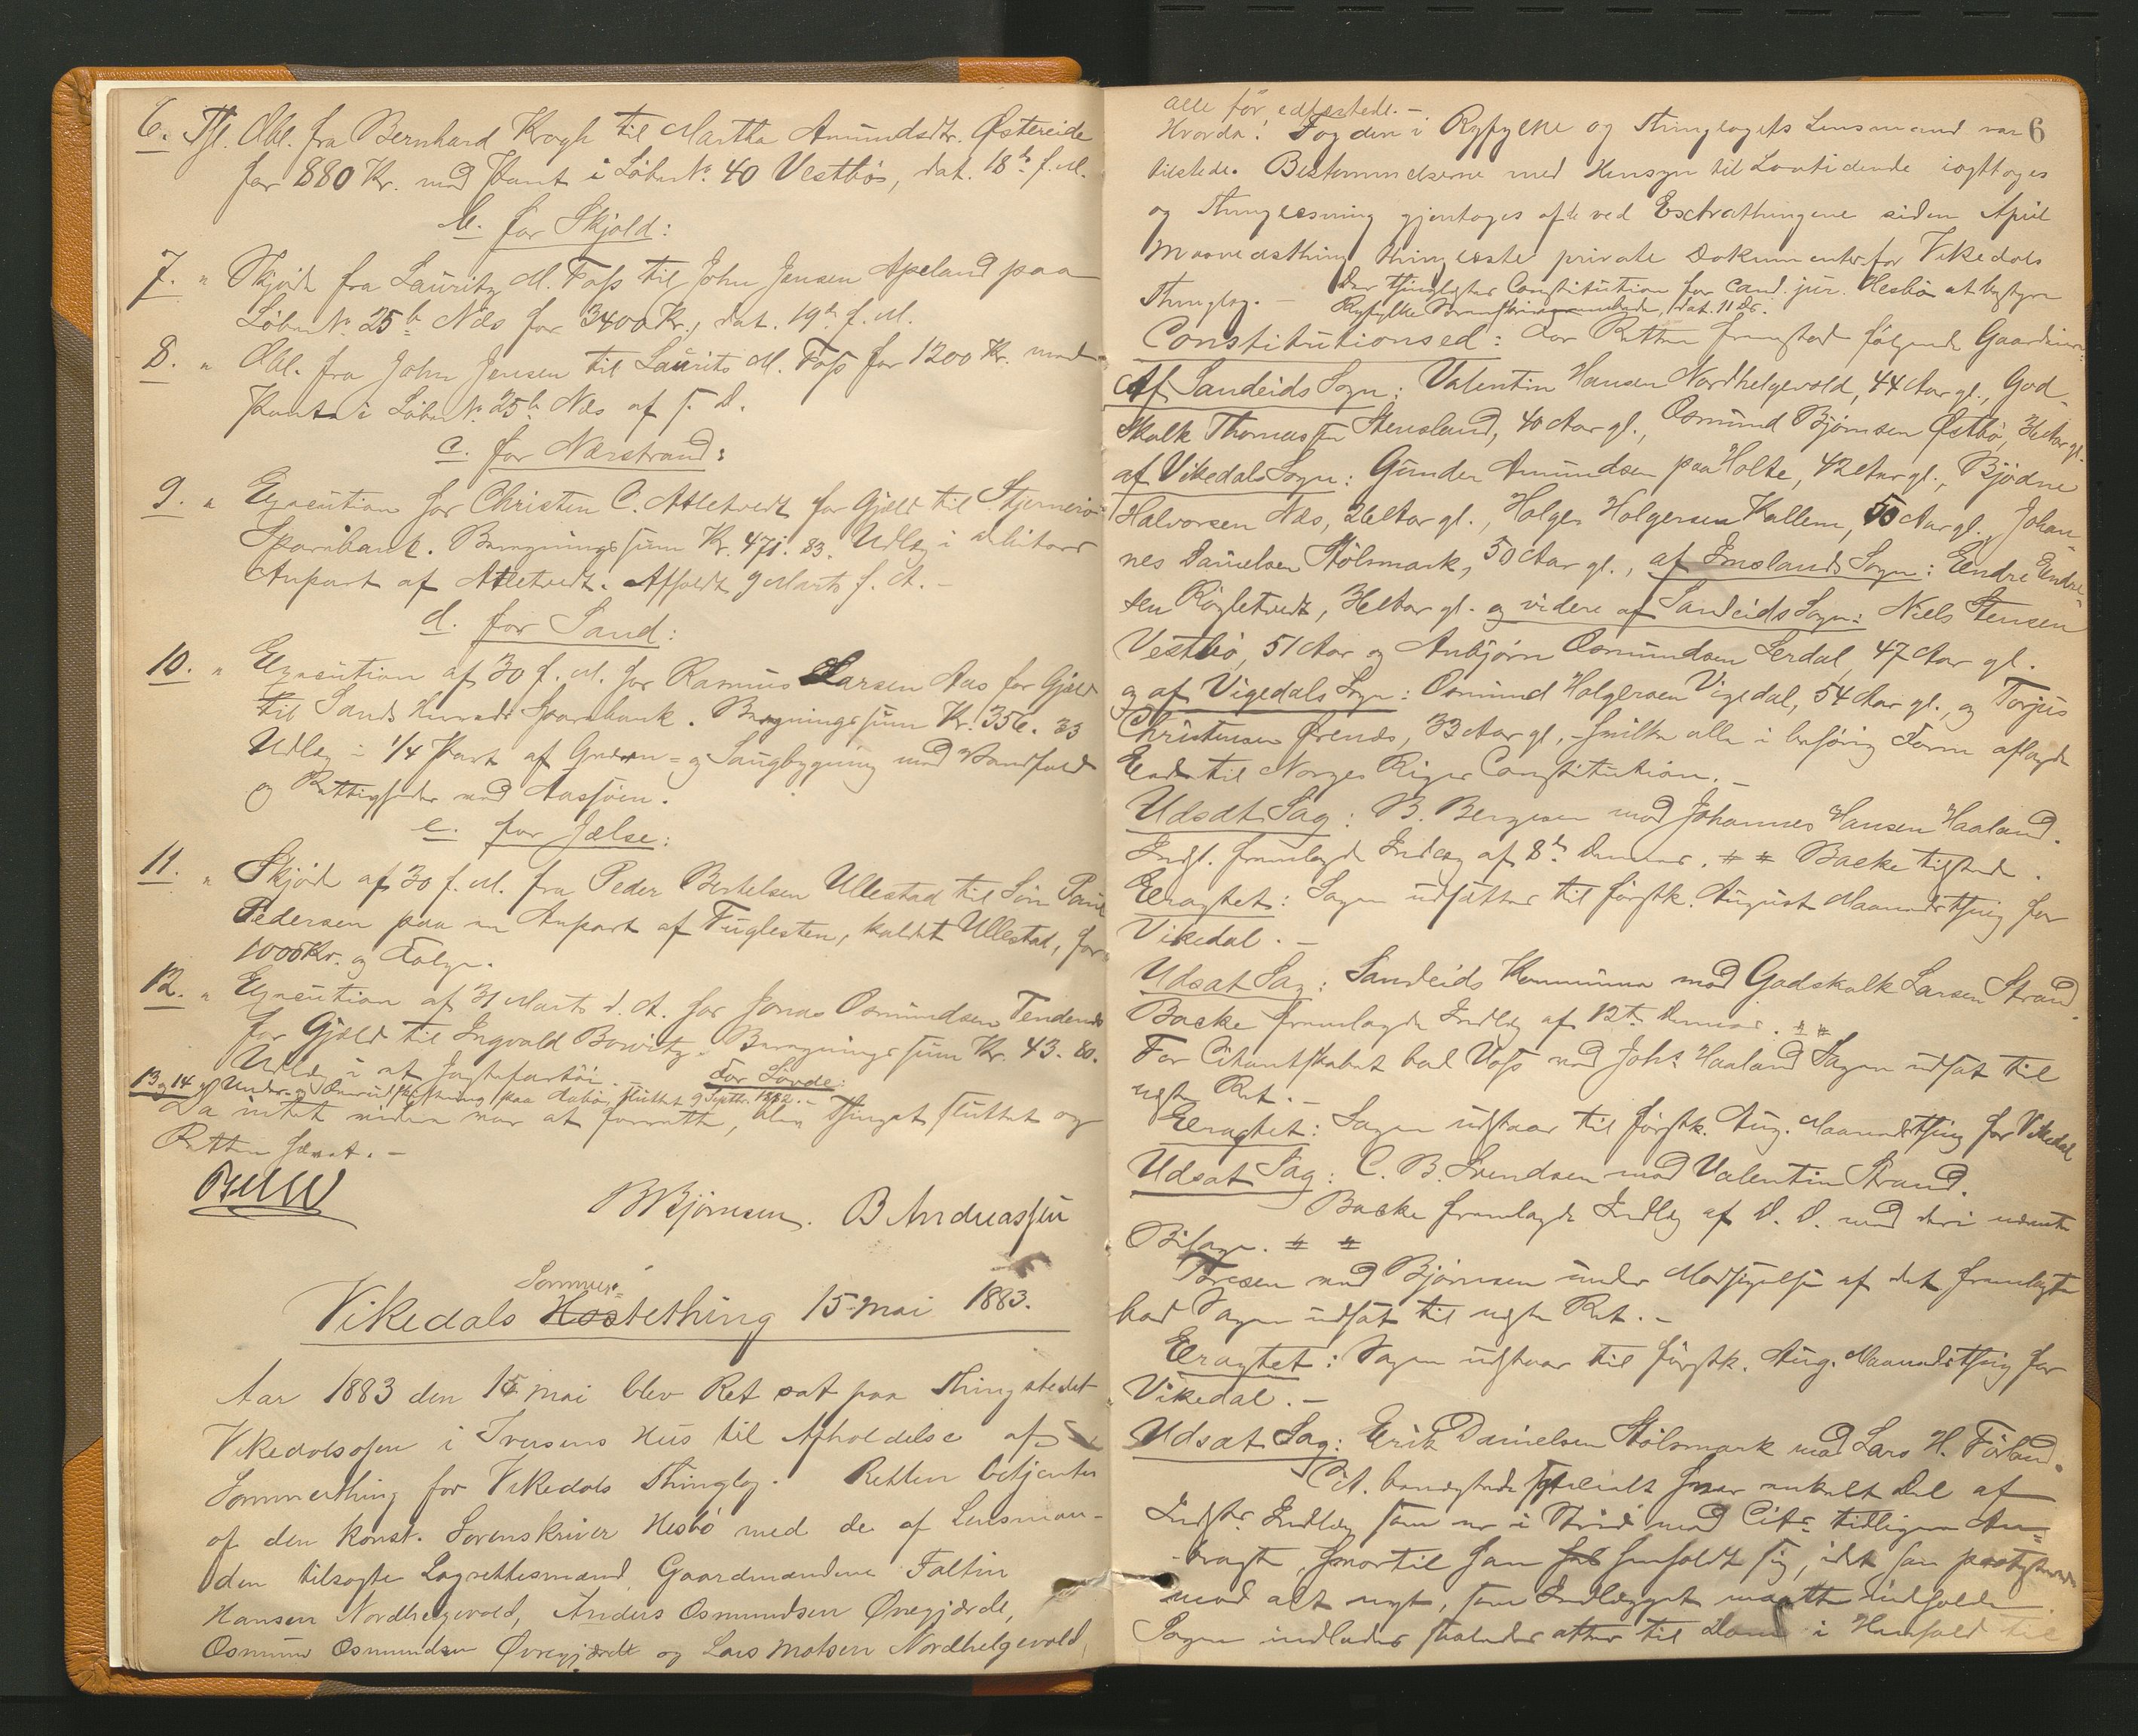 6. Tgl. Obl. fra Bernhard Krogh til Martha Amundsdtr. Østereide
for 880 Kr. med Pant i Løbe No. 40 Vestbö, dat. 18de f. M.
b. for Skjold:
7. " Skjöde fra Lauritz M. Foss til John Jensen Apeland paa
Löbe No. 25b Næs for 3400 Kr., dat. 19de f. M.
8. " Obl. fra John Jensen til Laurits M. Foss for 1200 Kr. med
Pant i Löbe No. 25b Næs af s. D.
c. for Nærstrand:
9. " Execution hos Christen C. Atletvedt for Gjæld til Stjernerö
Sparebank. Beregningssum Kr. 471. 83. Udlæg i debitors
Anpart af Atletvedt. Afholdt 9 Marts d. A. -
d. for Sand:
10. " Execution af 30 f. M. hos Rasmus Larsen Aas for Gjæld
til Sands Herreds Sparebank. Beregningssum Kr. 356. 33
Udlæg i 1/4 Part af Qværn- og Saugbygning med Vandfald
og Rettigheder ved Aasöen.
e. for Jælse:
11. " Skjöde af 30 f. M. fra Peder Bertelsen Ullestad til Sön Paul
Pedersen paa en Anpart af Fuglesten, kaldet Ullestad, for
1000 Kr. og Følge.
12. " Execution af 31 Marts d. A. hos Jonas Osmundsen Tendenes
for Gjæld til Ingvald Bowitz. Beregningssum Kr. 43. 80.
Udlæg i et Jagtefartöi. - For Sövde:
13 og 14 Under- og Overudskiftning paa sluttet 9 Septbr. 1882. -
Da intet videre var at forrette, blev Thinget sluttet og
Retten hævet. -
B Bjørnsen. B Andreassen
Sommer-
Vikedals Hostething 15 mai 1883.
Aar 1883 den 15 mai blev Ret sat paa Thingstedet
Vikedalsosen i Iversens Hus til Afholdelse af
Sommerthing for Vikedals Thinglag. Retten betjentes
af den konst. Sorenskriver Hesbö med de af Lensman-
den tilsagte Lagrettesmænd, Gaardmændene Faltin
Hansen Nordhelgevold, Anders Osmundsen Øvregjærde,
Osmund Osmundsen Øvregjærde og Lars Matsen Nordhelgevold,
6
alle før edfæstede. -
Hvorda! Fogden i Ryfylke og Thinglagets Lensmand var
tilstede. Bestemmelserne med Hensyn til Lovtidende iagttoges
og Thinglæsning gjentoges af de ved Extrathingene siden April
Maanedsthing thinglæste private Dokumenter for Vikedals
Thinglag. - Der thinglæstes Constitution for cand. jur. Hesbö at bestyre
Ryfylke Sorenskriverembede, dat. 11 ds.
Constitutionsed: For Retten fremstod følgende Gaardmænd:
Af Sandeids Sogn: Valentin Hansen Nordhelgevold, 44 Aar gl., God-
skalk Thomassen Stensland, 40 Aar gl., Osmund Bjørnsen Østbö, 36 Aar gl.
af Vikedals Sogn: Gunder Amundsen paa Holte, 42 Aar gl., Bjödne
Halvorsen Næs, 26 Aar gl., Holger Holgersen Kallem, 50 Aar gl., Johan-
nes Danielsen Stölsmark, 50 Aar gl., af Imslands Sogn: Endre Endre-
sen Røgletvedt, 36 Aar gl. og videre af Sandeids Sogn: Niels Stensen
Vestbö, 51 Aar og Anbjørn Osmundsen Lerdal, 47 Aar gl.
og af Vigedals Sogn: Osmund Holgersen Vigedal, 54 Aar gl., og Torjus
Christensen Ørenæs, 33 Aar gl., - hvilke alle i behörig Form aflagde
Eed til Norges Riges Constitution. -
Udsat Sag: B. Bergesen mod Johannes Hansen Haaland.
Indst. fremlagde Indlæg af 8de dennes. # # Backe tilstede.
Eragtet: Sagen udsættes til förstk. August Maanedsthing for
Vikedal. -
Udsat Sag: Sandeids Kommune mod Godskalk Larsen Strand.
Backe fremlagde Indlæg af 12te dennes. # #
For Citantskabet bad Voss ved Johs Haaland Sagen udsat til
næste Ret. -
Eragtet: Sagen udstaar til förstk. Aug. Maanedsthing for Vikedal
Udsat Sag: C. B. Svendsen mod Valentin Strand.
Backe fremlagde Indlæg af D. D. med deri nævnte
Bilage. # #
Toresen ved Bjørnsen under Modsigelse af det fremlagte
bad Sagen udsat til næste Ret. -
Eragtet: Sagen udstaar til förstk. Aug. Maanedsthing for
Vikedal. -
Udsat Sag: Erik Danielsen Stölsmark mod Lars H. Förland.
Cit. benægtede specielt hver enkelt Del af
Indst. Indlæg som er i Strid med Cits. tidligere An-
bragte, hvortil han henholdt sig, idet han protesterede
mod alt nyt, som Indlægget maatte indholde.
Sagen indlades saaledes atter til Doms i Henhold til